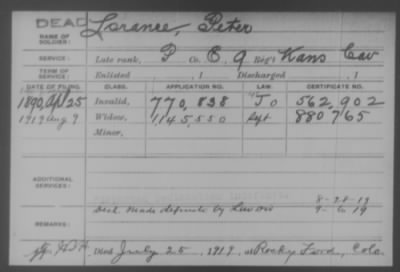 DEAD
NAME OF SOLDIER: Lorance, Peter
SERVICE: Late rank, P Co. E, 9 Reg't Kans Cav
TERM OF SERVICE: Enlisted , 1 Discharged , 1
DATE OF FILING. CLASS. APPLICATION NO. LAW. CERTIFICATE NO.
1890, Apl 25 Invalid, 770,838 Jo 562,902
1919 Aug 9 Widow, 1145,550 880765
Minor,
ADDITIONAL SERVICES:
8-28-19
made definite by Law 9-6 19
REMARKS:
Died July 25, 1919, at Rocky Ford, Colo.